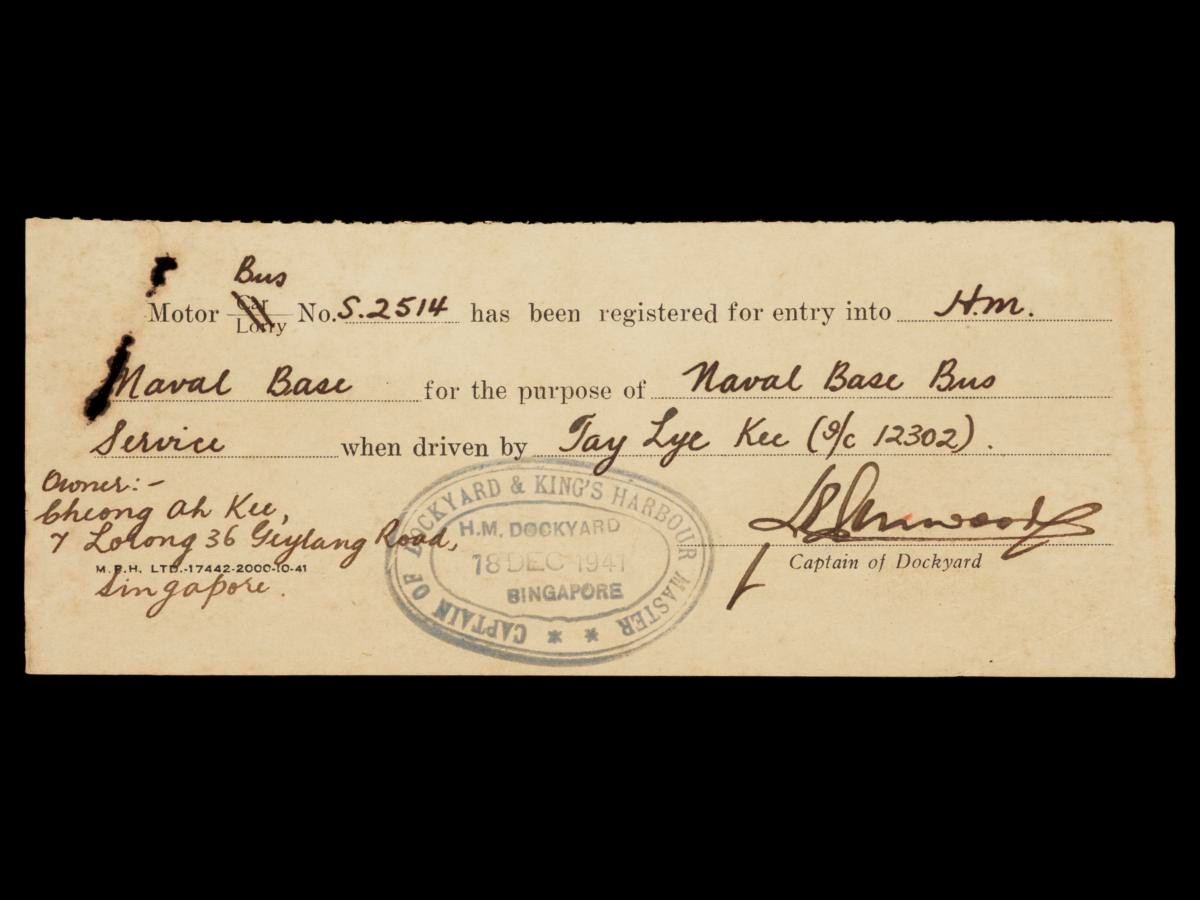 Bus
Motor Car No. S.2514 has been registered for entry into H.M.
Lorry
Naval Base for the purpose of Naval Base Bus
Service when driven by Tay Lye Kee (S/c 12302).
Owner:-
Cheong Ah Kee,
7 Lorong 36 Geylang Road,
M.P.H. LTD.-17442-2000-10-41
Singapore.
CAPTAIN OF DOCKYARD & KING'S HARBOUR MASTER
H.M. DOCKYARD
18 DEC 1941
SINGAPORE
Captain of Dockyard